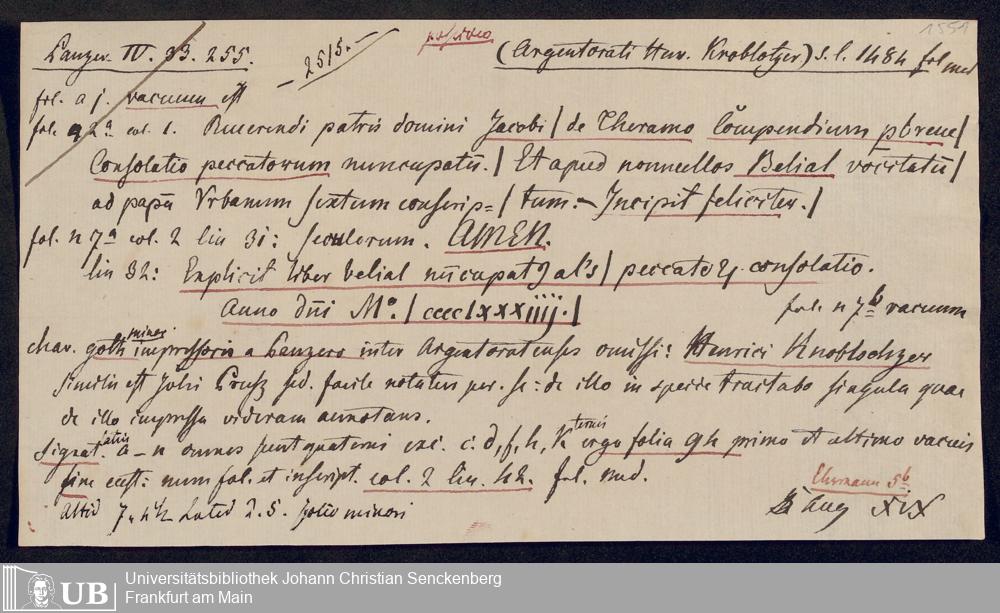 Panzer. IV. 33. 255.
2515.
possideo
(Argentorati Hnr. Knoblotzer.) s. l. 1484 fol med
1551
fol. a j. vacuum est
fol. a 2 a col. 1. Reuerendi patris domini Jacobi / de Theramo Compendium pbreue /
Consolatio peccatorum nuncupatū. / Et apud nonnellos Belial vocitatū /
ad papā Vrbanum sextum conscrip= / tum. - Incipit feliciter. /
fol. n 7 a col. 2 lin 31: seculorum. AMEN.
lin 32: Explicit liber belial nūcupatꝰ al's / peccatoꝝ consolatio.
Anno dñi M° / cccclxxxiiij. /
fol. n 7 b vacuum
char. goth minori impressoris a Panzero inter Argentoratenses omissi: Henrici Knoblochzer
similis est Johi Prusz sed. facile notatus per. se: de illo in specie tractabo singula quae
de illo impressa videram annotans.
Signat. a-n omnes sunt quaterni exc. c. d, f, h, k ternis ergo folia 94 primo et ultimo vacuis
sine cust: num fol. et inscript. col. 2 lin. 42. fol. med.
altid 7. 4½ Latid 2. 5. folio minori
Ehrmann 5 b
Aug XIX
UB Universitätsbibliothek Johann Christian Senckenberg
Frankfurt am Main